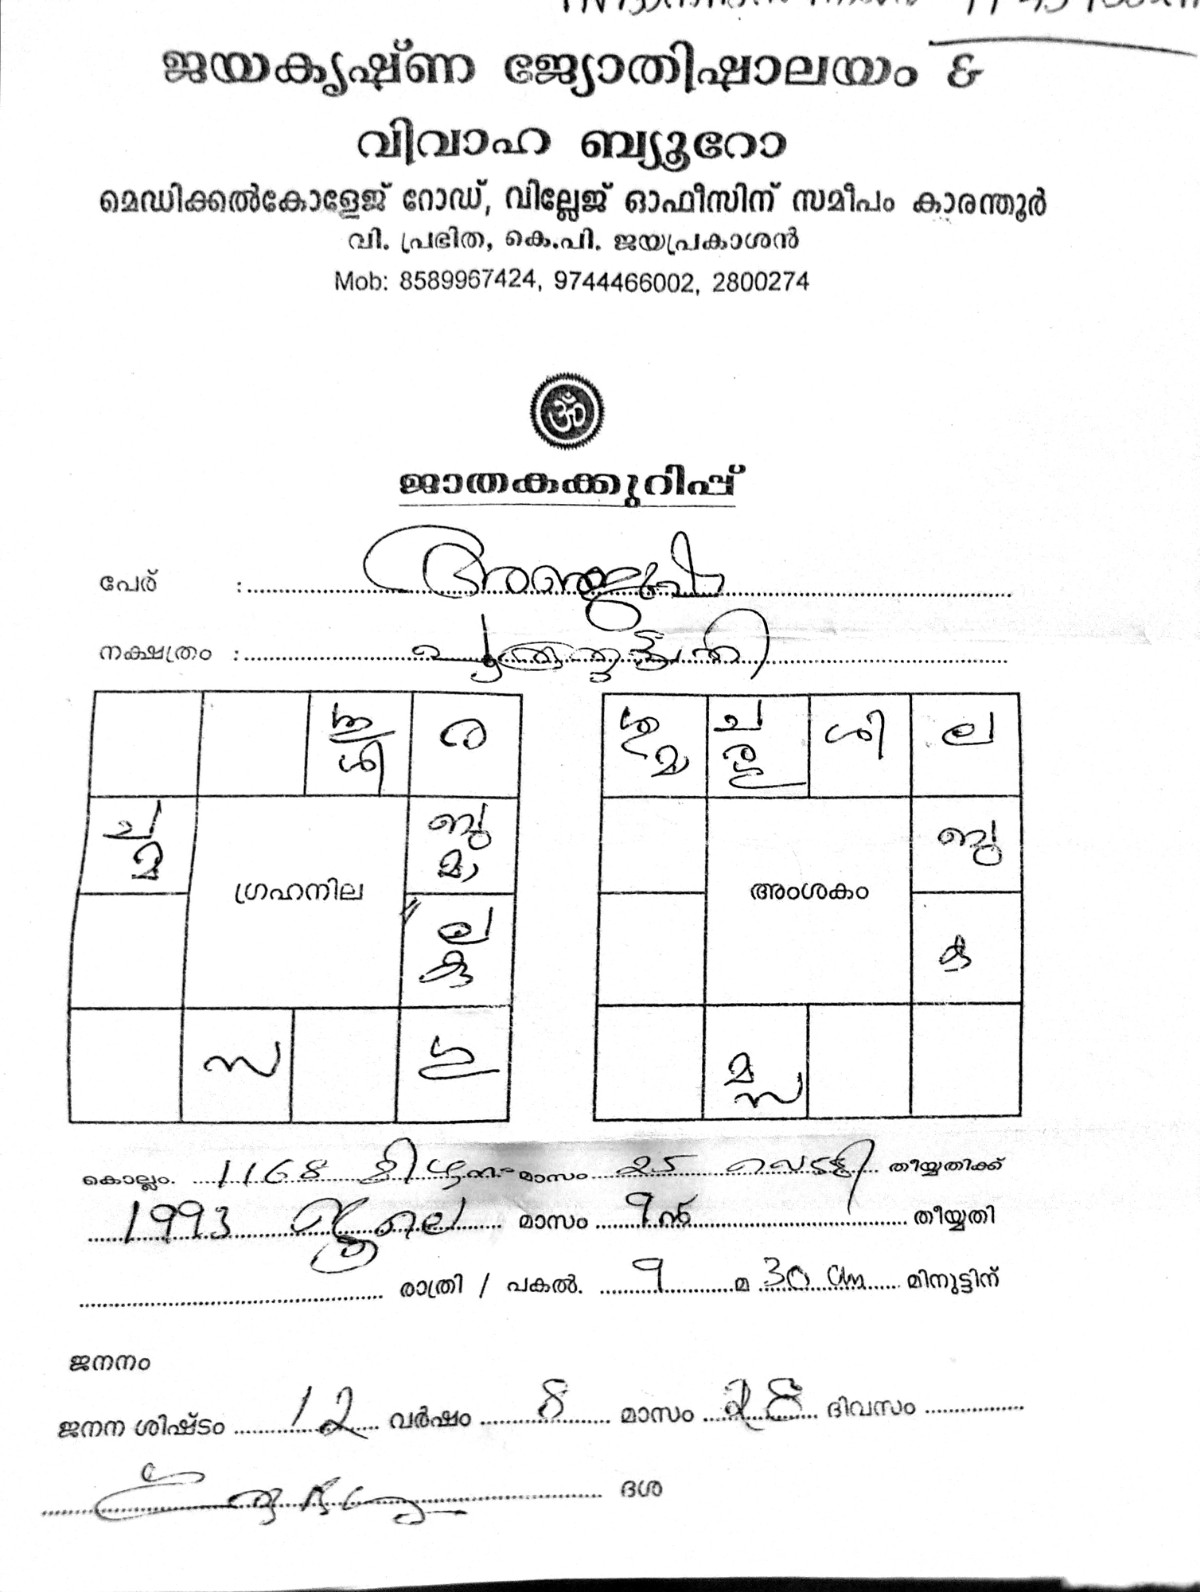 ജയകൃഷ്ണ ജ്യോതിഷാലയം &
വിവാഹ ബ്യൂറോ
മെഡിക്കൽകോളേജ് റോഡ്, വില്ലേജ് ഓഫീസിന് സമീപം കാരന്തൂർ
വി. പ്രഭിത, കെ.പി. ജയപ്രകാശൻ
Mob: 8589967424, 9744466002, 2800274
ॐ
ജാതകക്കുറിപ്പ്
പേര് :
നക്ഷത്രം : പൂരുരുട്ടാതി
ശു ര ശു ച ശി ല
ശി മാ
ച ബു ബു
മ മാ
ഗ്രഹനില അംശകം
ല
കു കു
സ ഗു മ
സ
കൊല്ലം. 1168 മിഥുനം മാസം 25 വെള്ളി തീയ്യതിക്ക്
1993 ജൂലൈ മാസം 9ൻ തീയ്യതി
രാത്രി / പകൽ. 9 മ 30 am മിനുട്ടിന്
ജനനം
ജനന ശിഷ്ടം 12 വർഷം 8 മാസം 28 ദിവസം
ദശ